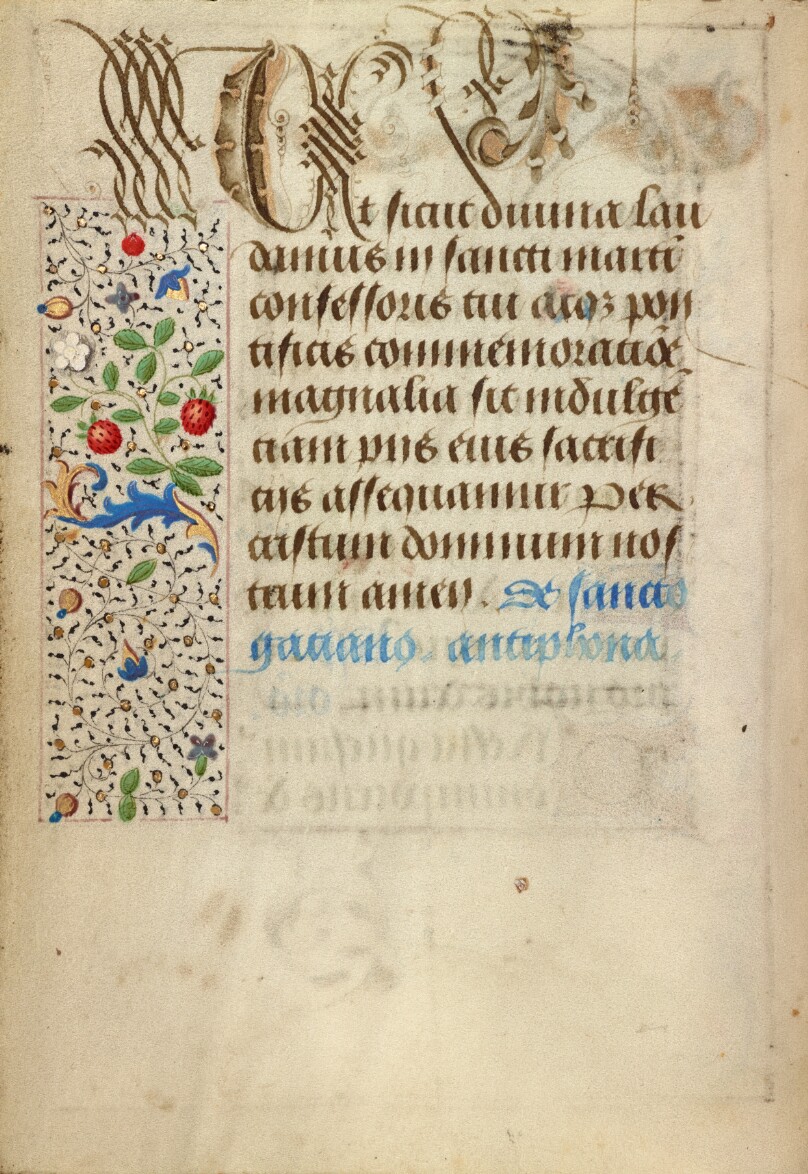 Ut sicut divina lau
damus in sancti marti
confessoris tui atq3 pon
tificis commemoratiōe
magnalia sic indulgē
ciam piis eius sacrifi
ciis assequamur Per
cristum dominum nos
trum amen. De sancto
gaciano. antiphona